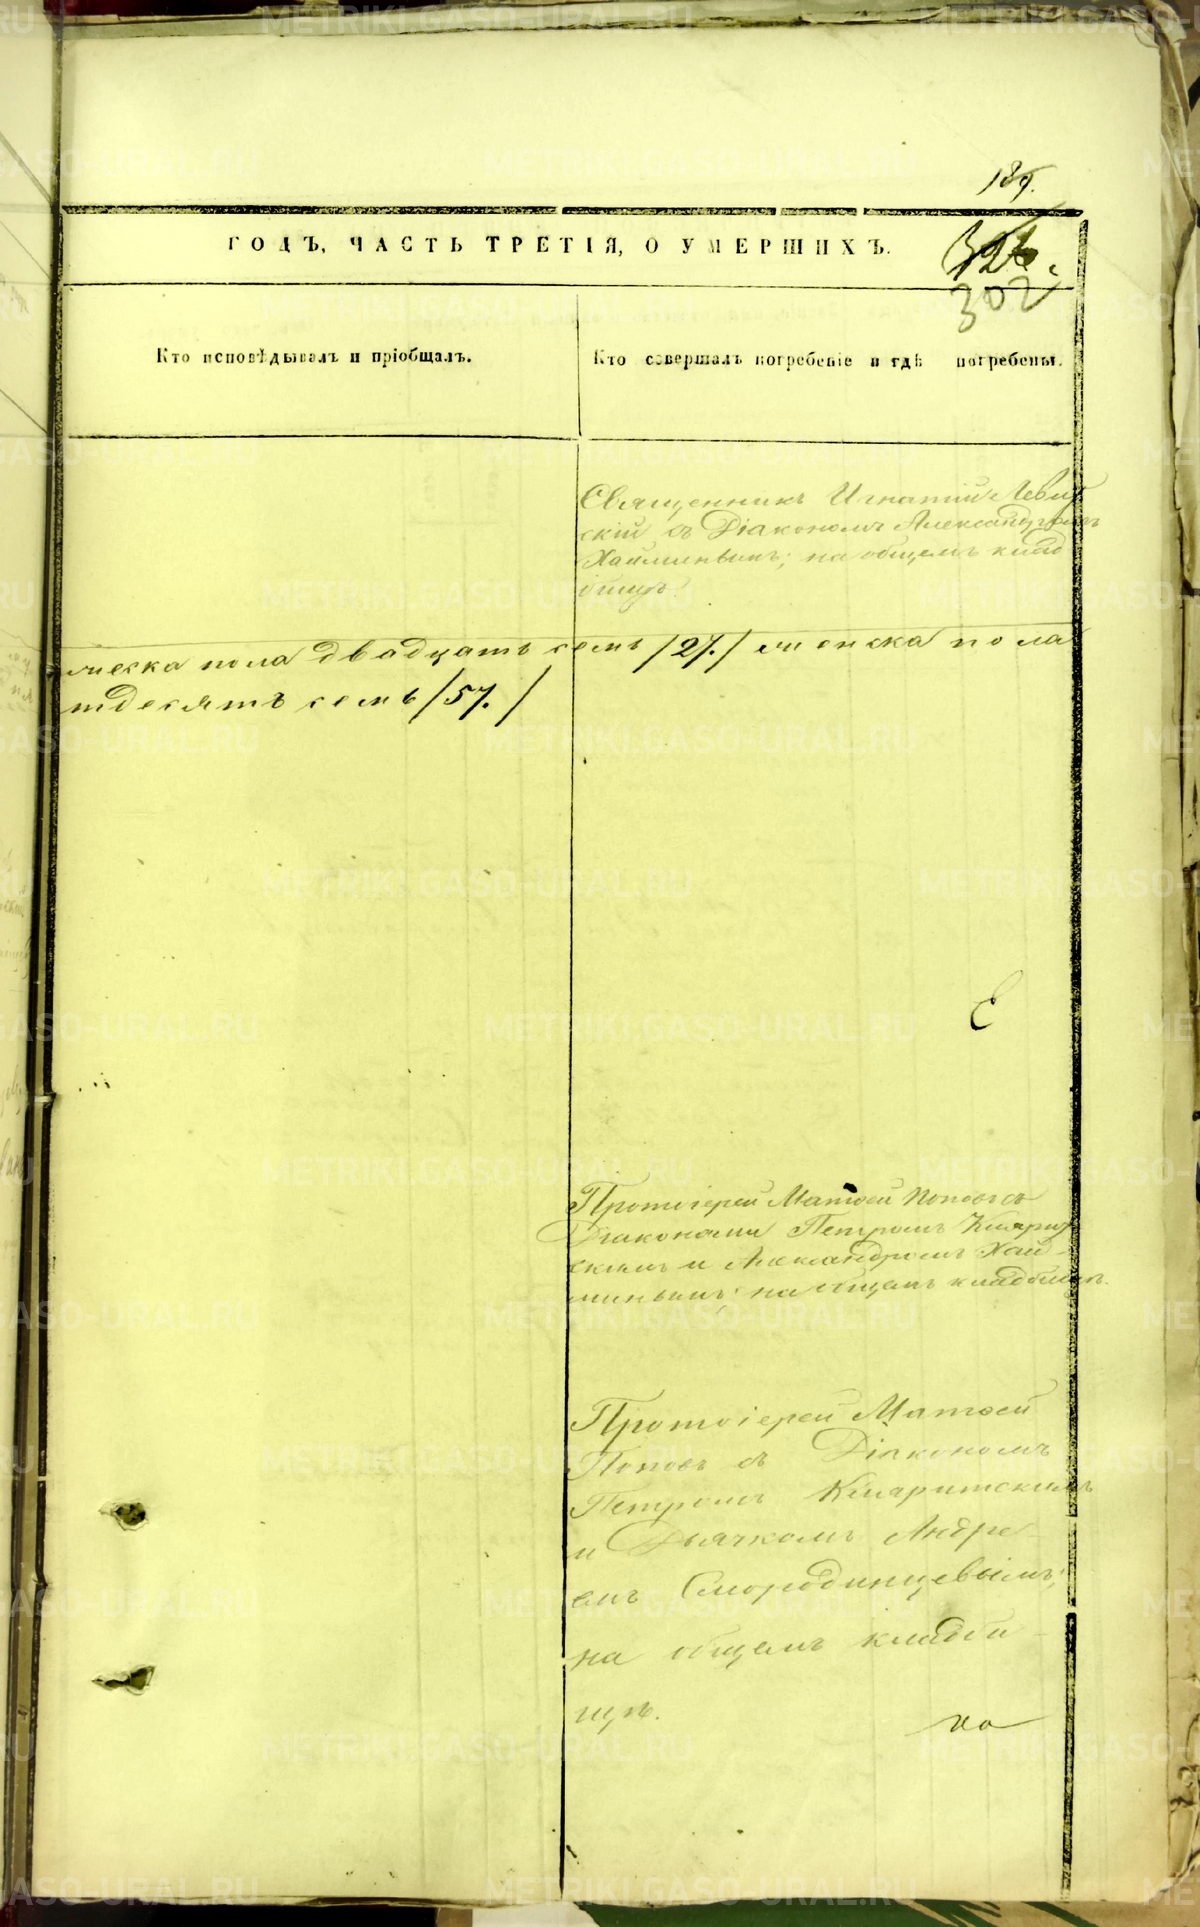 189.
ГОДЪ, ЧАСТЬ ТРЕТІЯ, О УМЕРШИХЪ.
302
Кто исповѣдывалъ и пріобщалъ.
Кто совершалъ погребеніе и гдѣ погребены.
Священникъ Игнатій Левит
скій съ Діакономъ Александромъ
Хайминымъ; на общемъ клад
бищѣ.
жеска пола двадцать семь /27./ женска пола
тдесятъ семь /57./
Протоіерей Матѳей Поповъ съ
Діаконами Петромъ
скимъ и Александромъ Хай-
минымъ; на общемъ кладбищѣ.
Протоіерей Матѳей
Поповъ съ Діакономъ
Петромъ
и Дьячкомъ Андре-
емъ Смородинцевымъ;
на общемъ кладби-
щѣ.
METRIKI.GASO-URAL.RU